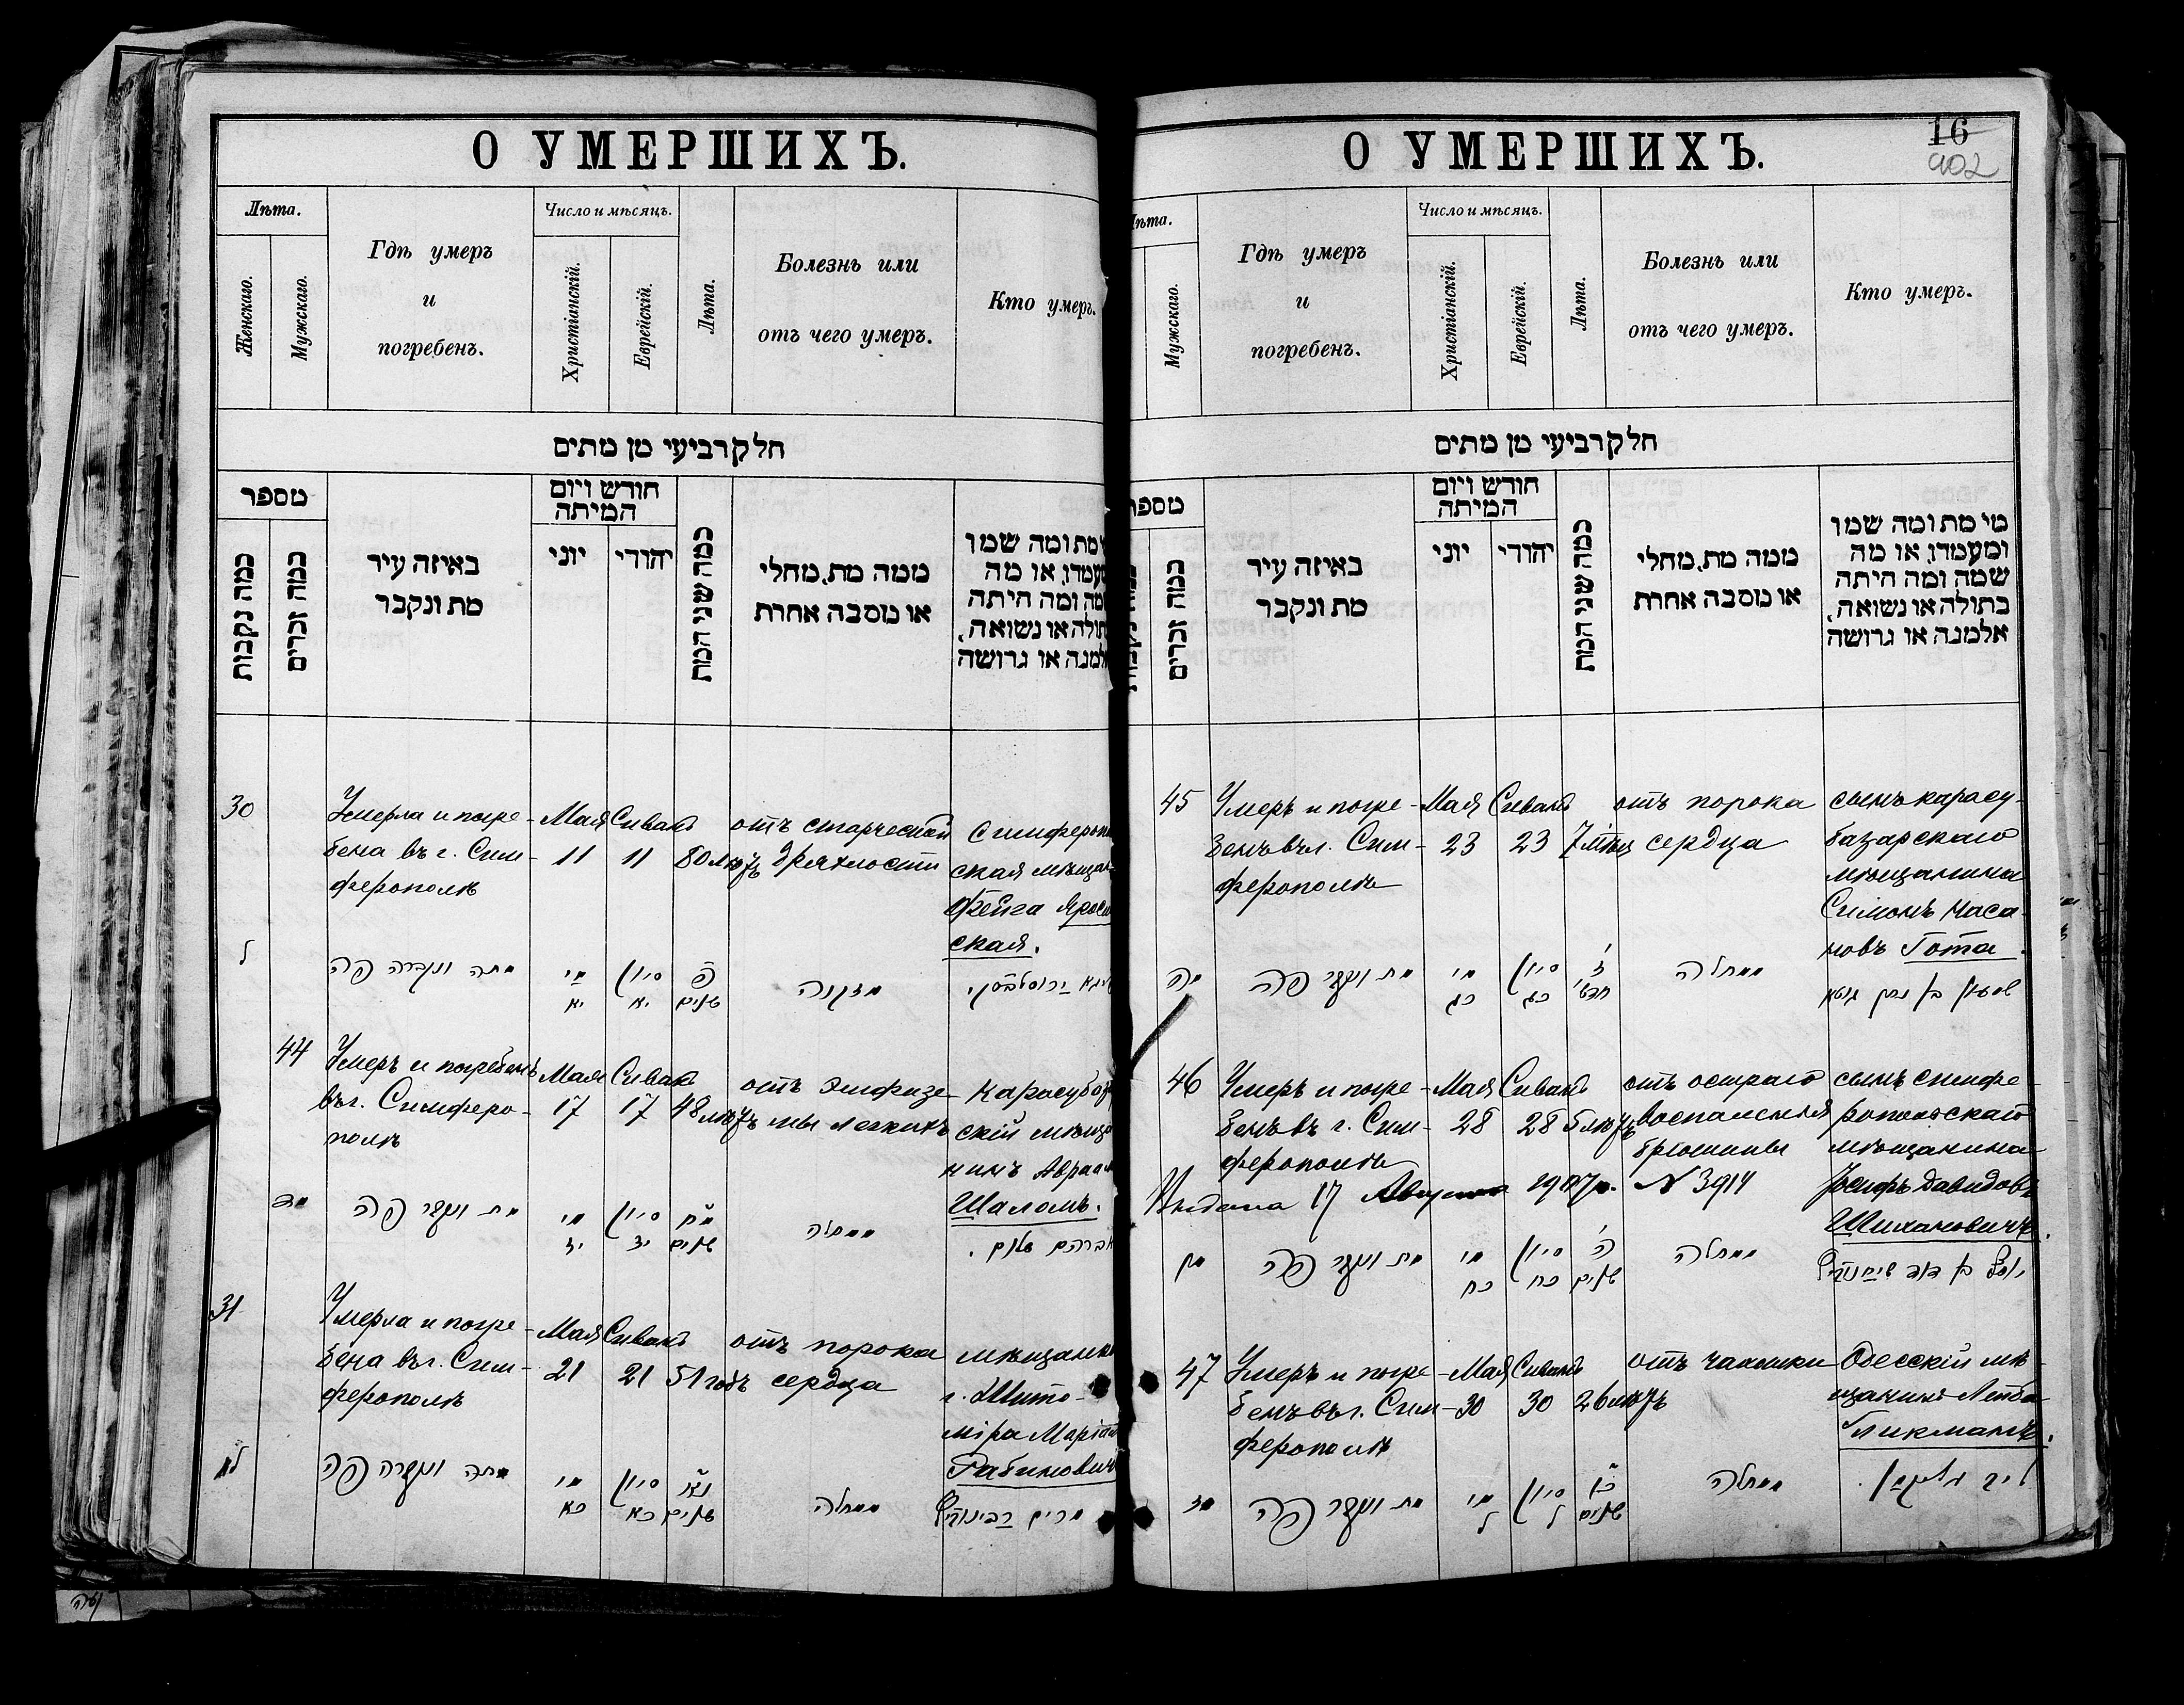 О УМЕРШИХЪ.
Лѣта.
Женскаго.
Мужскаго.
Гдѣ умеръ
и
погребенъ.
Число и мѣсяцъ.
Христіанскій.
Еврейскій.
Лѣта.
Болезнь или
отъ чего умеръ.
Кто умеръ.
חלק רביעי מן מתים
מספר
כמה נקבות
כמה זכרים
באיזה עיר
מת ונקבר
חודש ויום
המיתה
יוני
יהודי
כמה שני המת
ממה מת, מחלי
או מסבה אחרת
מת ומה שמו
ומעמדו, או מה
שמה ומה היתה
בתולה או נשואה,
אלמנה או גרושה
30
Умерла и погре-
бена въ г. Сим-
ферополѣ
Мая
11
Сиванъ
11
80 лѣтъ
отъ старческой
дряхлости
Симферопол
ская мѣщан
Фейга Яросл
ская.
ל
מתה ונקברה פה
מי
יא
סיון
יא
פ
שנים
מזקנה
ירוסלבסקי
44
Умеръ и погребенъ
въ г. Симферо-
полѣ
Мая
17
Сиванъ
17
48 лѣтъ
отъ эмфизе-
мы легкихъ
Карасубаз
скій мѣща
нинъ Авраам
Шаломъ.
מד
מת ונקבר פה
מי
יז
סיון
יז
מח
שנים
ממחלה
אברהם שלום.
31
Умерла и погре-
бена въ г. Сим-
ферополѣ
Мая
21
Сиванъ
21
51 годъ
отъ порока
сердца
мѣщанка
г. Жито-
міра Маріам
Рабинович
לא
מתה ונקברה פה
מי
כא
סיון
כא
נא
שנים
ממחלה
מרים רבינוביץ
О УМЕРШИХЪ.
16
402
Лѣта.
Мужскаго.
Гдѣ умеръ
и
погребенъ.
Число и мѣсяцъ.
Христіанскій.
Еврейскій.
Лѣта.
Болезнь или
отъ чего умеръ.
Кто умеръ.
חלק רביעי מן מתים
מספר
כמה זכרים
באיזה עיר
מת ונקבר
חודש ויום
המיתה
יוני
יהודי
כמה שני המת
ממה מת, מחלי
או מסבה אחרת
מי מת ומה שמו
ומעמדו, או מה
שמה ומה היתה
בתולה או נשואה,
אלמנה או גרושה
45
Умеръ и погре-
бенъ въ г. Сим-
ферополѣ
Мая
23
Сиванъ
23
7 мѣц
отъ порока
сердца
сынъ карасу-
базарскаго
мѣщанина
Симонъ Часа-
новъ Гота.
מה
מת ונקבר פה
מי
כג
סיון
כג
ז
חדשי
ממחלה
שמעון בן גוטא
46
Умеръ и погре-
бенъ въ г. Сим-
ферополѣ
Мая
28
Сиванъ
28
5 лѣтъ
отъ остраго
воспаленія
брюшины
сынъ симфе-
ропольскаго
мѣщанина
Іосифъ Давидовъ
Шихановичъ.
Выдана 17 Августа 1907 г. № 3914
מו
מת ונקבר פה
מי
כח
סיון
כח
ה
שנים
ממחלה
יוסף בן דוד שיחנוביץ
47
Умеръ и погре-
бенъ въ г. Сим-
ферополѣ
Мая
30
Сиванъ
30
26 лѣтъ
отъ чахотки
Одесскій мѣ-
щанинъ Лейба
Гликманъ.
מז
מת ונקבר פה
מי
ל
סיון
ל
כו
שנים
ממחלה
ליב גליקמן.